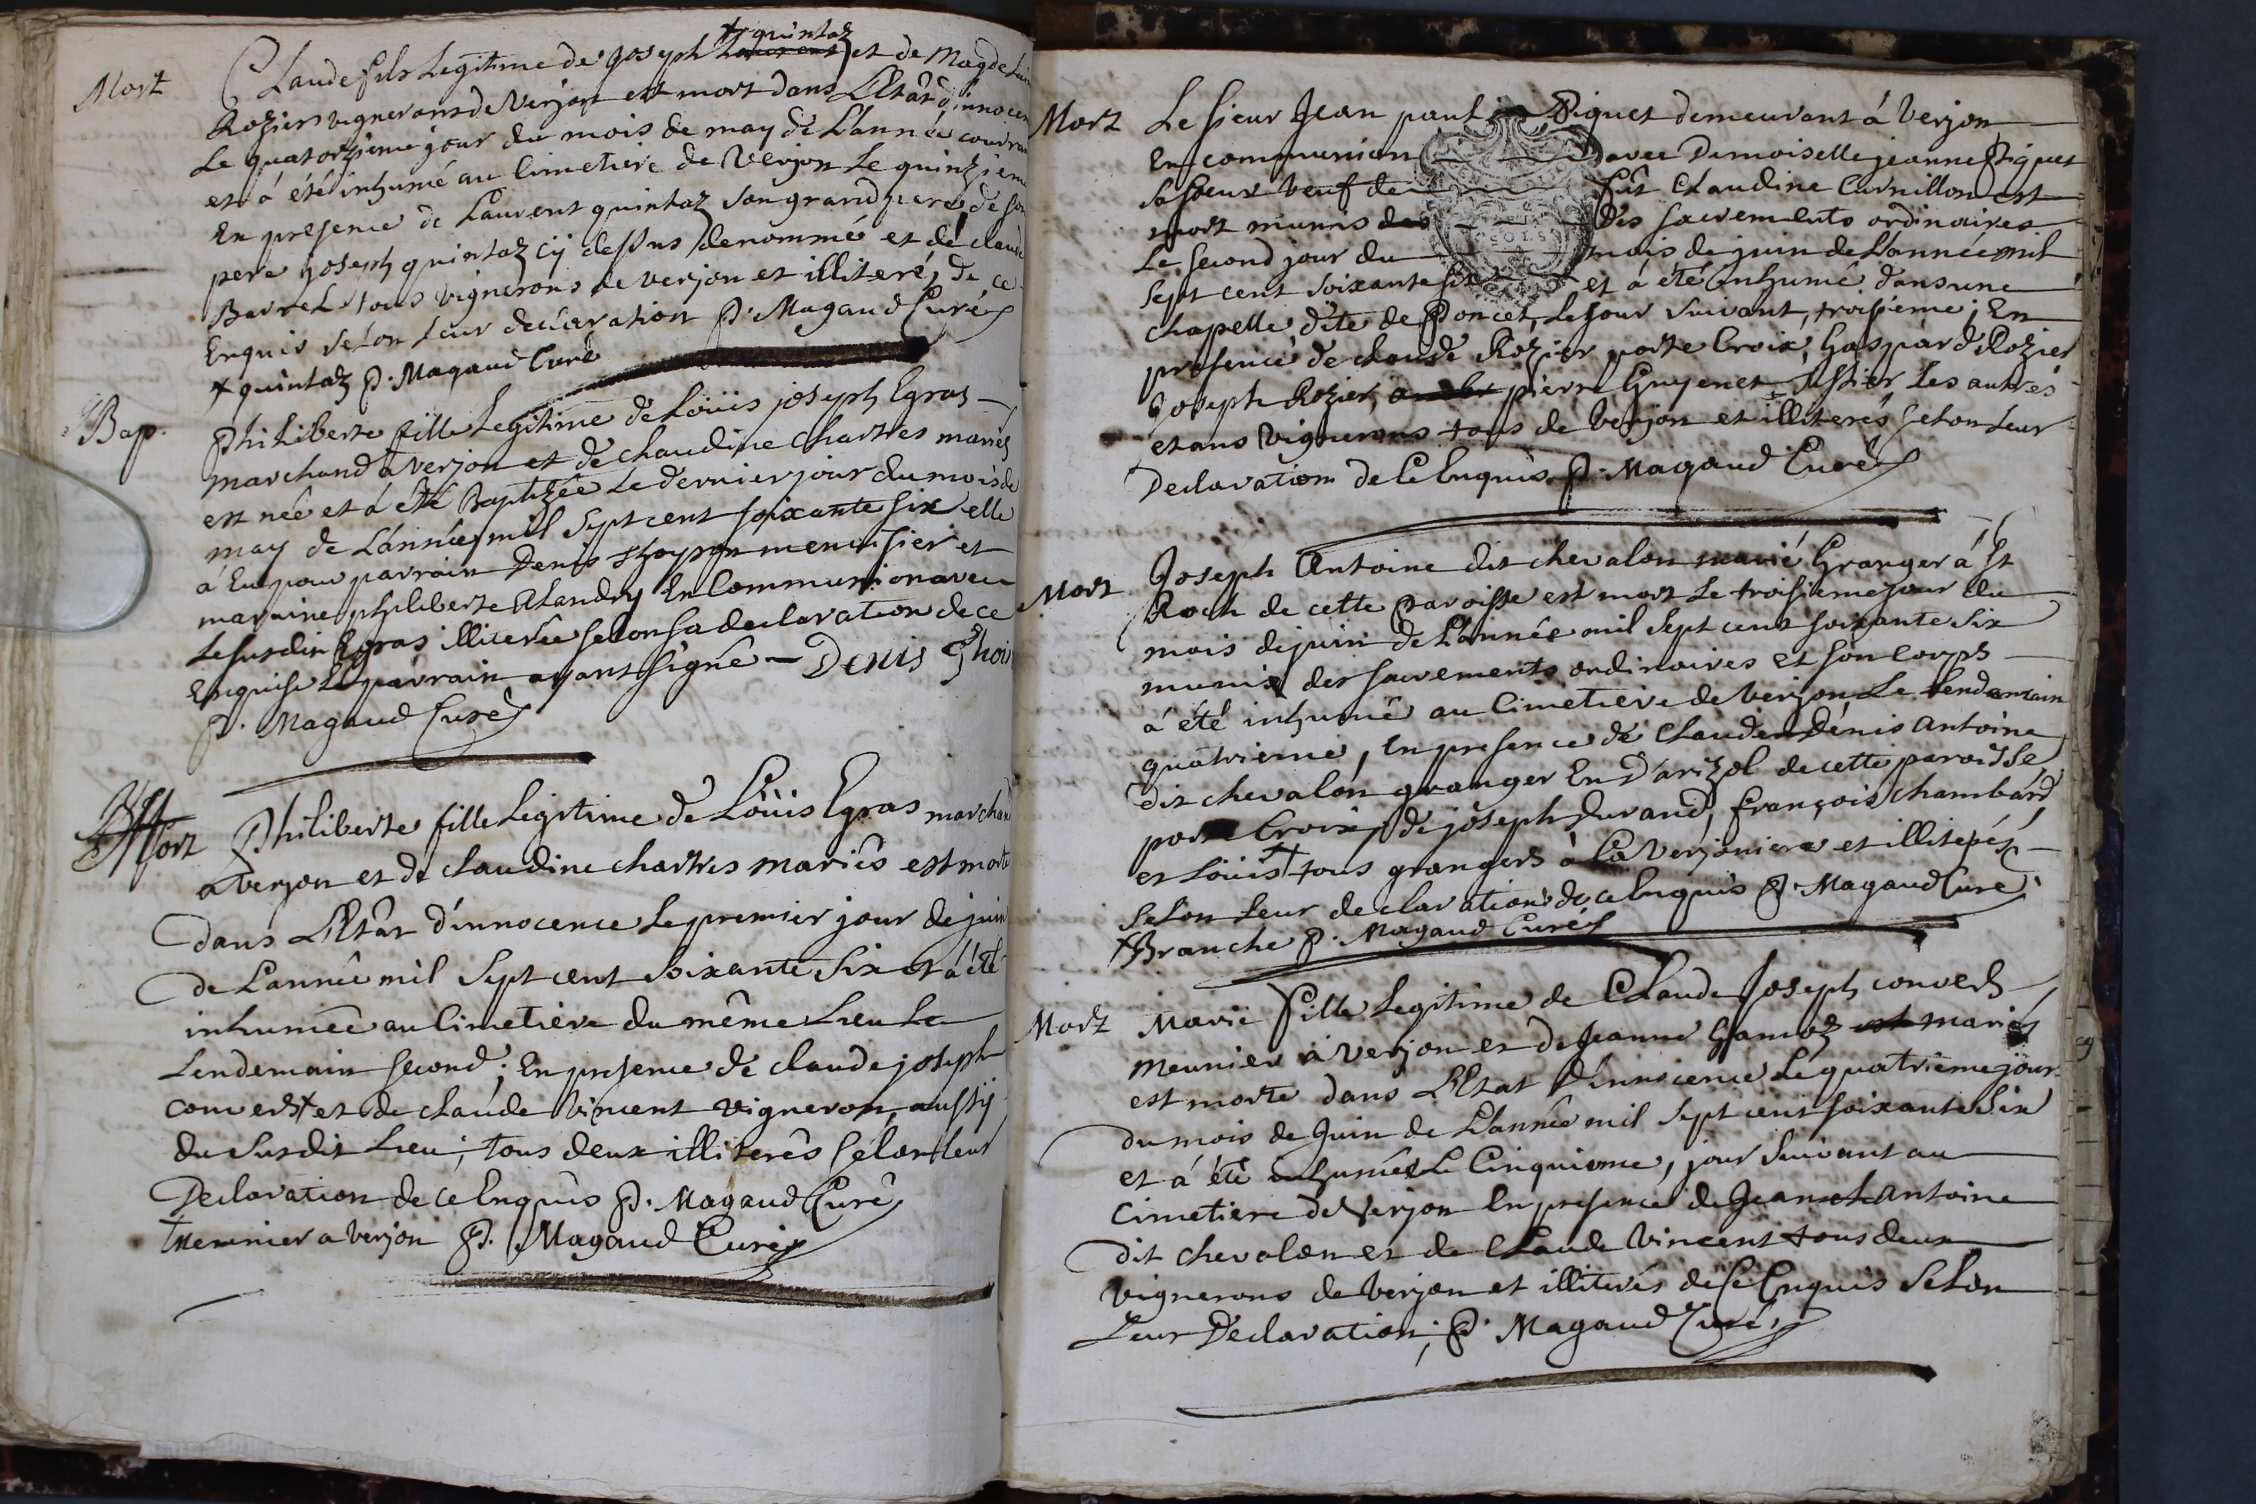 Mort
Claude fils Legitime de joseph Laurent +quintaz et de Magdelai
Rozier vignerons de Verjon est mort dans L'Etat d'innocen
Le quatorzieme jour du mois de may de L'année couran
et à été inhumé au Cimetiere de Verjon Le quinzieme
En presence de Laurent quintaz son grand pere de son
pere joseph quintaz cÿ dessus denommé et de claude
Barrel tous vignerons de verjon et illiterés de ce
Enquis selon Leur declaration P. Magaud Curé
+ quintaz P. Magaud Curé
Bap.
Philiberte fille Legitime de Loüis joseph Egras
marchand a verjon et de claudine Chartres mariés
est née et à été Baptizée Le dernier jour du mois de
may de L'année mil sept cent soixante six elle
à Eu pour parrain Denis menuisier et
maraine philiberte Landry En Communion avec
Le susdit Egras illiterée selon sa declaration de ce
Enquise Le parrain ayant signé - Denis
P. Magaud Curé
Mort
Philiberte fille Legitime de Loüis Egras marchand
a verjon et de claudine chartres mariés est morte
dans L'Etat d'innocence Le premier jour de juin
de L'année mil sept cent soixante six et à été
inhumée au Cimetiere du même Lieu Le
Lendemain second; En presence de claude joseph
convers+ et de claude Vincent vigneron, aussÿ
du susdit Lieu, tous deux illiterés selon Leur
Declaration de ce Enquis P. Magaud Curé
+meunier a verjon P. Magaud Curé
Mort
Le sieur Jean paul Piquet demeurant à Verjon
En communion avec Demoiselle jeanne Piquet
sa soeur veuf de fût Claudine Cornillon est
mort munis des Des sacrements ordinaires
Le second jour du mois de juin de L'année mil
sept cent soixante six et à été Enhumé dans une
chapelle dite de Poncet, Le jour suivant, troisieme; En
presence de claude Rozier porte Croix, Gaspard Rozier
Joseph Rozier, pierre Guyenet Les autres
etans vignerons tous de Verjon et illiterés selon Leur
Declaration de Ce Enquis P. Magaud Curé
Mort
Joseph Antoine dit chevalon marié Granger à St
Roch de cette Paroisse est mort Le troisieme jour du
mois de juin de L'année mil sept cent soixante six
munis des sacrements ordinaires et son corps
à été inhumé au Cimetiere de Verjon Le Lendemain
quatrieme, En presence de Claude Denis Antoine
dit chevalon granger En D'arizol de cette paroisse
porte Croix, de joseph durand, françois chambard
et Loüis+ tous grangers à La Verjoniere et illiterés
selon Leur declaration de ce Enquis P. Magaud Curé
+Branche P. Magaud Curé
Mort
Marie fille Legitime de Claude Joseph convers
meunier à Verjon et de Jeanne est mariés
est morte dans L'Etat D'innocence Le quatrieme jour
du mois de Juin de L'année mil sept cent soixante six
et à été inhumée Le Cinquieme, jour suivant au
Cimetiere de Verjon En presence de Jean Antoine
dit chevalon et de Claude Vincent tous deux
vignerons de Verjon et illiterés de Ce Enquis selon
Leur Declaration; P. Magaud Curé